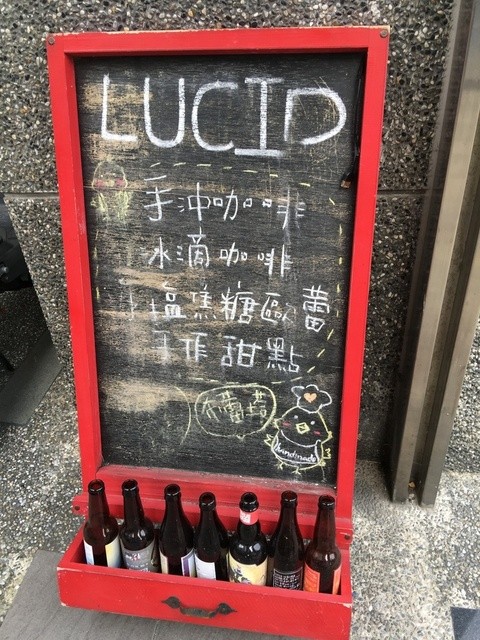 LUCID
手沖咖啡
水滴咖啡
塩焦糖歐蕾
手作甜點
handmade